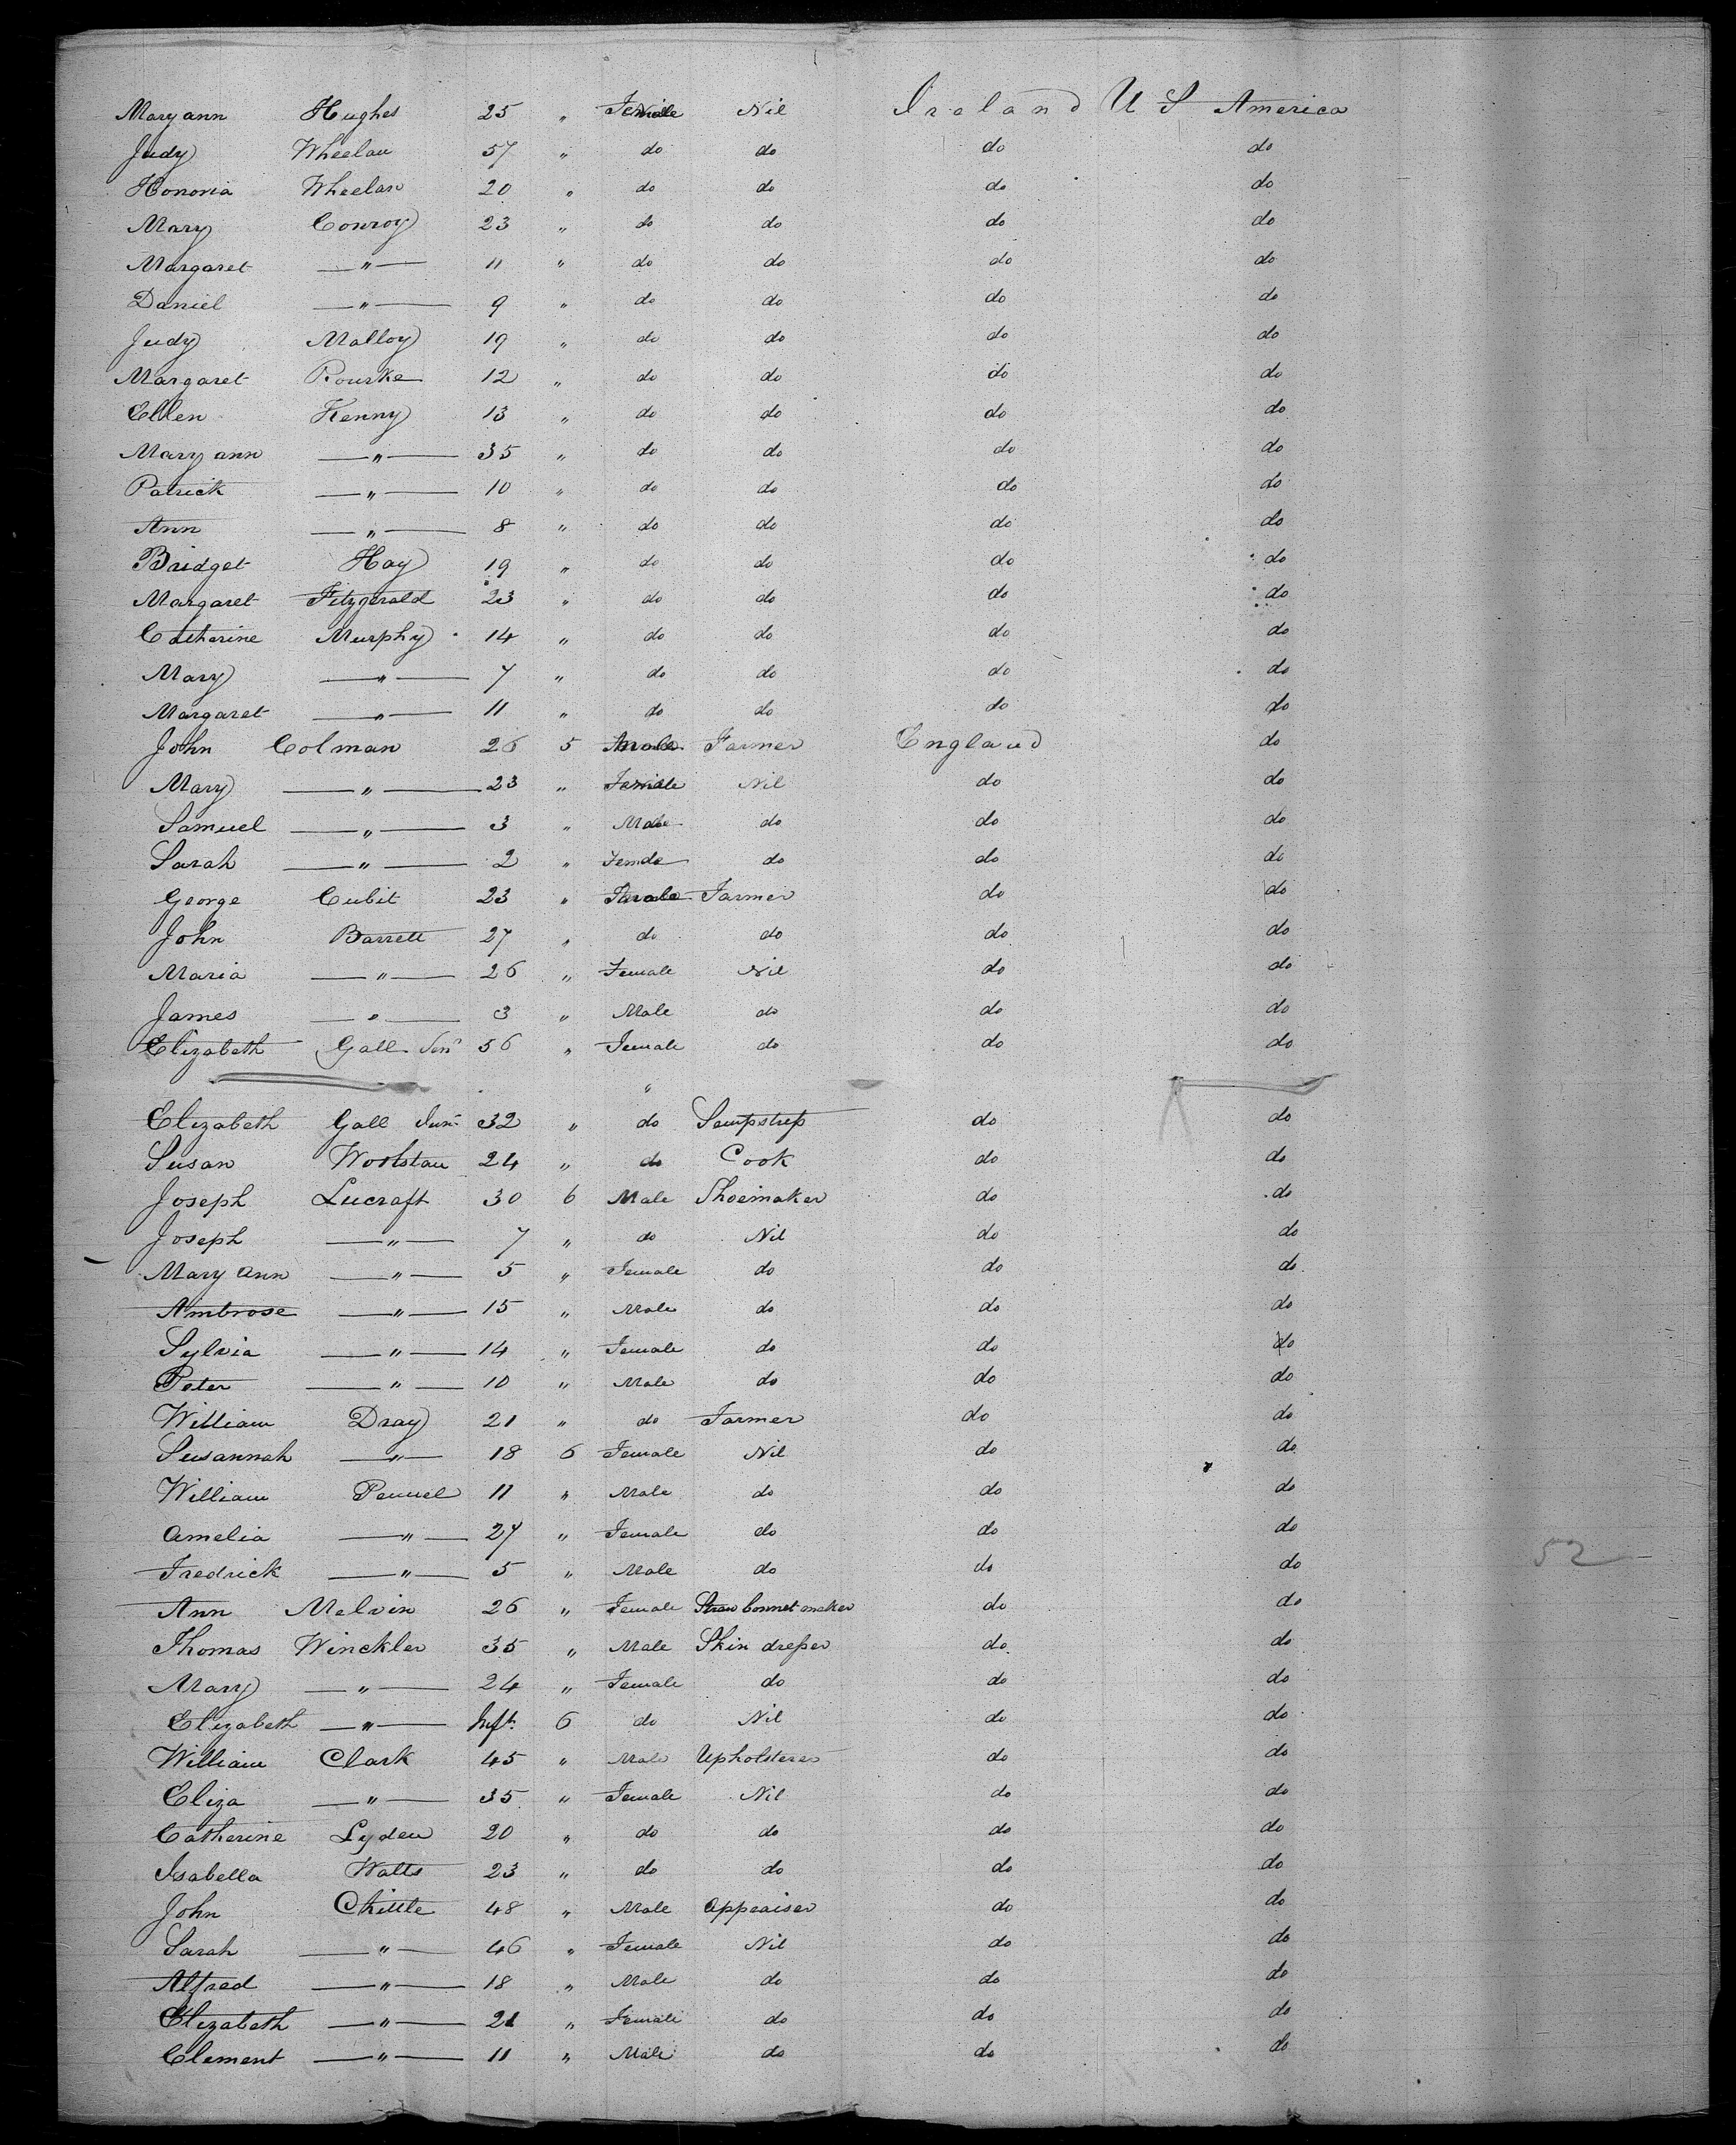 Mary ann Hughes 25 " Female Nil Ireland U S America
Judy Wheelan 57 " do do do do
Honoria Wheelan 20 " do do do do
Mary Conroy 23 " do do do do
Margaret —"— 11 " do do do do
Daniel —"— 9 " do do do do
Judy Malloy 19 " do do do do
Margaret Rourke 12 " do do do do
Ellen Kenny 13 " do do do do
Mary ann —"— 35 " do do do do
Patrick —"— 10 " do do do do
Ann —"— 8 " do do do do
Bridget Hay 19 " do do do do
Margaret Fitzgerald 23 " do do do do
Catherine Murphy 14 " do do do do
Mary —"— 7 " do do do do
Margaret —"— 11 " do do do do
John Colman 26 5 Male Farmer England do
Mary —"— 23 " Female Nil do do
Samuel —"— 3 " Male do do do
Sarah —"— 2 " Female do do do
George Cubit 23 " Male Farmer do do
John Barrett 27 " do do do do
Maria —"— 26 " Female Nil do do
James —"— 3 " Male do do do
Elizabeth Gall Senr 56 " Female do do do
"
Elizabeth Gall Junr 32 " do Sempstress do do
Susan 24 " do Cook do do
Joseph Lucraft 30 6 Male Shoemaker do do
Joseph —"— 7 " do Nil do do
Mary Ann —"— 5 " Female do do do
Ambrose —"— 15 " Male do do do
Sylvia —"— 14 " Female do do do
Peter —"— 10 " Male do do do
William Dray 21 " do Farmer do do
Susannah —"— 18 6 Female Nil do do
William Pennel 11 " Male do do do
Amelia —"— 27 " Female do do do
Fredrick —"— 5 " Male do do do 52
Ann Melvin 26 " Female Straw bonnet maker do do
Thomas Winckler 35 " Male Skin dresser do do
Mary —"— 24 " Female do do do
Elizabeth —"— Inft. 6 do Nil do do
William Clark 45 " Male Upholsterer do do
Eliza —"— 35 " Female Nil do do
Catherine Lyden 20 " do do do do
Isabella Watts 23 " do do do do
John Chittle 48 " Male Appraiser do do
Sarah —"— 46 " Female Nil do do
Alfred —"— 18 " Male do do do
Elizabeth —"— 21 " Female do do do
Clement —"— 11 " Male do do do